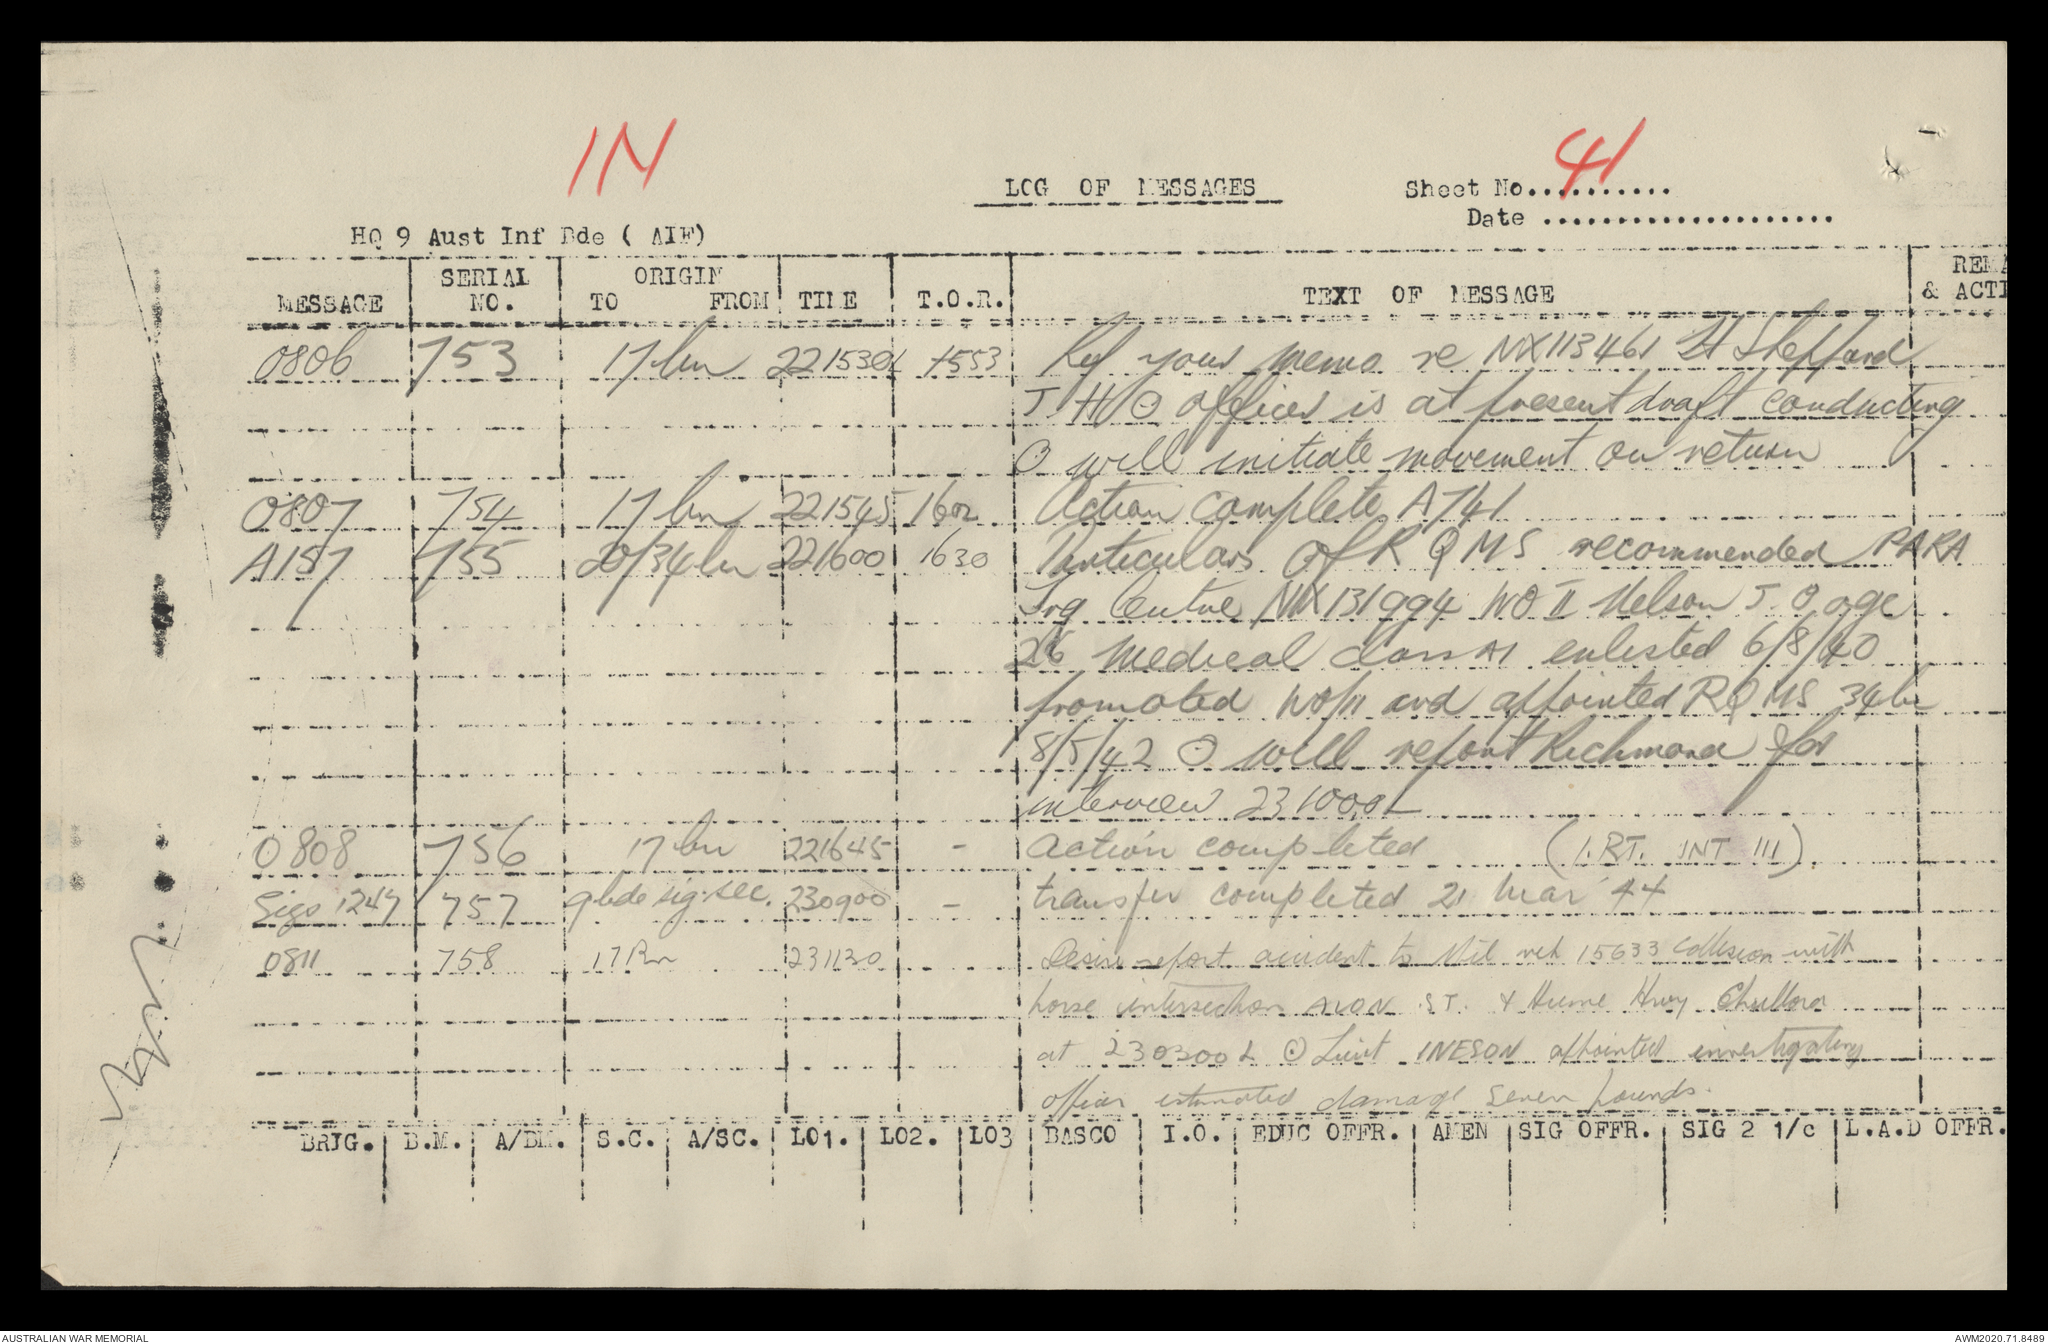 IN
41
LOG OF MESSAGES
Sheet No...........
Date ....................
HQ 9 Aust Inf Bde ( AIF)
MESSAGE SERIAL NO. ORIGIN TO FROM TIME T.O.R. TEXT OF MESSAGE REMA & ACTI
O806 753 17 bn 221530L 1553 Ref your memo re NX113461 Lt Sheppard
J.H O officer is at present draft conducting
O will initiate movement on return
O807 754 17 bn 221545 1602 Action complete A741
A157 755 20/34 bn 221600 1630 Particulars of RQMS recommended PARA
Trg Centre NX131994 WO II Nelson J.O age
26 medical class A1 enlisted 6/8/40
promoted WO/II and appointed RQMS 34 bn
8/5/42 O will report Richmond for
interview 231000L
O808 756 17 bn 221645 - Action completed (1.RT. INT III).
Sigs 1247 757 9 bde sig. sec. 230900 - transfer completed 21 Mar 44
O811 758 17 Bn 231130 Desire report accident to Mil veh 15633 collision with
horse intersection ST. & Hume Hwy Chullora
at 230300L O Lieut INESON appointed investigating
officer estimated damage seven pounds.
BRIG. B.M. A/BM. S.C. A/SC. LO1. LO2. LO3 BASCO I.O. EDUC OFFR. AMEN SIG OFFR. SIG 2 1/c L.A.D OFFR.
AUSTRALIAN WAR MEMORIAL
AWM2020.71.8489